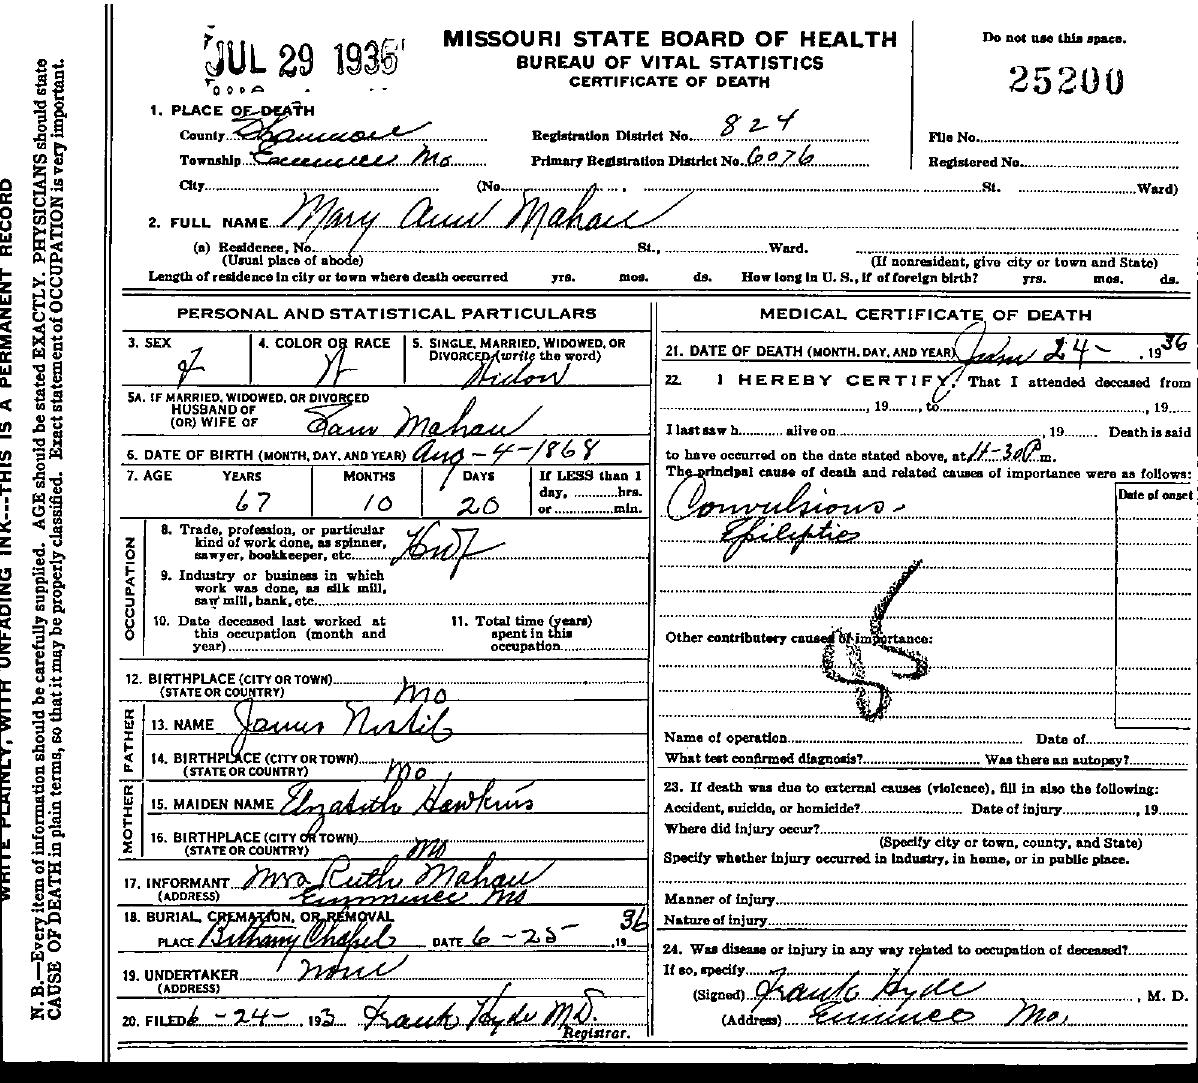 JUL 29 1936
MISSOURI STATE BOARD OF HEALTH
BUREAU OF VITAL STATISTICS
CERTIFICATE OF DEATH
Do not use this space.
25200
1. PLACE OF DEATH
County Shannon Registration District No. 824 File No.
Township Eminence Mo Primary Registration District No. 6076 Registered No.
City (No. St. Ward)
2. FULL NAME Mary Ann Mahan
(a) Residence, No. St., Ward.
(Usual place of abode) (If nonresident, give city or town and State)
Length of residence in city or town where death occurred yrs. mos. ds. How long in U. S., if of foreign birth? yrs. mos. ds.
PERSONAL AND STATISTICAL PARTICULARS
3. SEX 4. COLOR OR RACE 5. SINGLE, MARRIED, WIDOWED, OR
DIVORCED (write the word)
F W Widow
5A. IF MARRIED, WIDOWED, OR DIVORCED
HUSBAND OF
(OR) WIFE OF Sam Mahan
6. DATE OF BIRTH (MONTH, DAY, AND YEAR) Aug-4-1868
7. AGE YEARS MONTHS DAYS If LESS than 1
day, hrs.
67 10 20 or min.
OCCUPATION
8. Trade, profession, or particular
kind of work done, as spinner,
sawyer, bookkeeper, etc. Hwf
9. Industry or business in which
work was done, as silk mill,
saw mill, bank, etc.
10. Date deceased last worked at
this occupation (month and
year)
11. Total time (years)
spent in this
occupation
12. BIRTHPLACE (CITY OR TOWN)
(STATE OR COUNTRY) Mo
FATHER
13. NAME James
14. BIRTHPLACE (CITY OR TOWN)
(STATE OR COUNTRY) Mo
MOTHER
15. MAIDEN NAME Elizabeth Hawkins
16. BIRTHPLACE (CITY OR TOWN)
(STATE OR COUNTRY) Mo
17. INFORMANT Mrs Ruth Mahan
(ADDRESS) Eminence Mo
18. BURIAL, CREMATION, OR REMOVAL
PLACE Bethany Chapel DATE 6-25- , 19 36
19. UNDERTAKER none
(ADDRESS)
20. FILED 6-24- , 193 Frank Hyde MD.
Registrar.
MEDICAL CERTIFICATE OF DEATH
21. DATE OF DEATH (MONTH, DAY, AND YEAR) June 24- , 19 36
22. I HEREBY CERTIFY, That I attended deceased from
, 19 , to , 19
I last saw h alive on , 19 Death is said
to have occurred on the date stated above, at 11-30 P m.
The principal cause of death and related causes of importance were as follows:
Date of onset
Convulsions -
Epileptic
85
Other contributory causes of importance:
Name of operation Date of
What test confirmed diagnosis? Was there an autopsy?
23. If death was due to external causes (violence), fill in also the following:
Accident, suicide, or homicide? Date of injury , 19
Where did injury occur?
(Specify city or town, county, and State)
Specify whether injury occurred in industry, in home, or in public place.
Manner of injury
Nature of injury
24. Was disease or injury in any way related to occupation of deceased?
If so, specify
(Signed) Frank Hyde , M. D.
(Address) Eminence Mo.
WRITE PLAINLY, WITH UNFADING INK---THIS IS A PERMANENT RECORD
N. B.—Every item of information should be carefully supplied. AGE should be stated EXACTLY. PHYSICIANS should state
CAUSE OF DEATH in plain terms, so that it may be properly classified. Exact statement of OCCUPATION is very important.